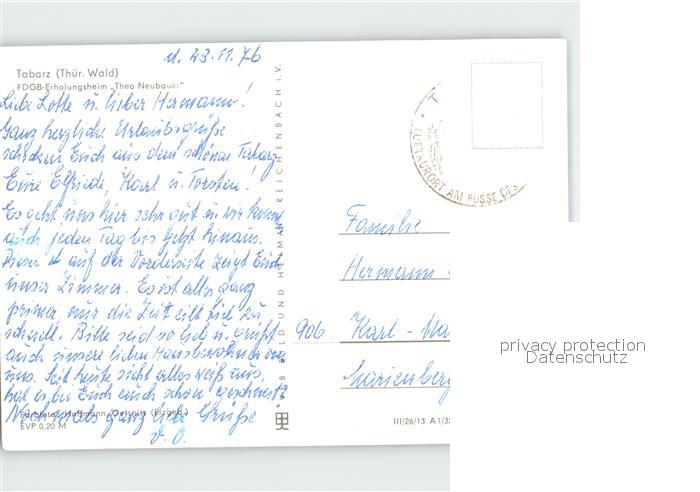 d. 23.11.76
Tabarz (Thür. Wald)
FDGB-Erholungsheim „Theo Neubauer"
Liebe Lotte u. lieber Hermann!
Ganz herzliche Urlaubsgrüße
schicken Euch aus dem schönen Tabarz
Eure Elfriede, Karl u. Torsten!
Es geht uns hier sehr gut u. wir können
auch jeden Tag bis jetzt hinaus.
Dieser auf der Vorderseite zeigt Euch
unser Zimmer. Es ist alles ganz
prima, nur die Zeit eilt viel zu
schnell. Bitte seid so lieb u. grüßt
auch unsere lieben Hausbewohner von
uns. Seit heute sieht alles weiß aus,
hat es bei Euch auch schon geschneit?
Nochmals ganz liebe Grüße
d. O.
Farbfoto: Hoffmann, Oelsnitz (Erzgeb.)
EVP 0,20 M
VEB BILD UND HEIMAT REICHENBACH i.V.
LUFTKURORT AM FUSSE DES
Familie
Hermann
906 Karl-Ma
Marienberg
III/26/13 A 1/3
privacy protection
Datenschutz